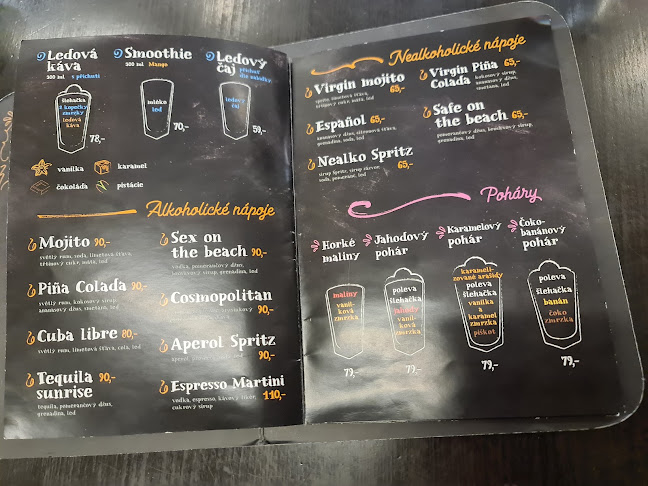 Ledová
káva
300 ml s příchutí
šlehačka
2 kopečky
zmrzky
ledová
káva
78,-
Smoothie
300 ml Mango
mléko
led
70,-
Ledový
čaj
ledový
čaj
59,-
vanilka
karamel
čokoláda
pistácie
Alkoholické nápoje
Mojito 90,-
světlý rum, soda, limetová šťáva,
třtinový cukr, máta, led
Piña Colada 90,-
světlý rum, kokosový sirup,
ananasový džus, smetana, led
Cuba libre 80,-
světlý rum, limetová šťáva, cola, led
Tequila 90,-
sunrise
tequila, pomerančový džus,
grenadina, led
Sex on
the beach 90,-
vodka, pomerančový džus,
broskvový sirup, grenadina, led
Cosmopolitan
90,-
Aperol Spritz
90,-
Espresso Martini
vodka, espresso, kávový likér,
cukrový sirup
110,-
Nealkoholické nápoje
Virgin mojito 65,-
sprite, limetová šťáva,
třtinový cukr, máta, led
Español 65,-
ananasový džus, citronová šťáva,
grenadina, soda, led
Nealko Spritz
65,-
sirup Spritz, sirup
soda, pomeranč, led
Virgin Piña 65,-
Colada
kokosový sirup,
ananasový džus,
smetana, led
Safe on
the beach 65,-
pomerančový džus, broskvový sirup,
grenadina, led
Poháry
Horké
maliny
maliny
vanil-
ková
zmrzka
79,-
Jahodový
pohár
poleva
šlehačka
jahody
vanil-
ková
zmrzka
79,-
Karamelový
pohár
karameli-
zované arašídy
poleva
šlehačka
vanilka
a
karamel
zmrzka
piškot
77,-
Čoko-
banánový
pohár
poleva
šlehačka
banán
čoko
zmrzka
79,-